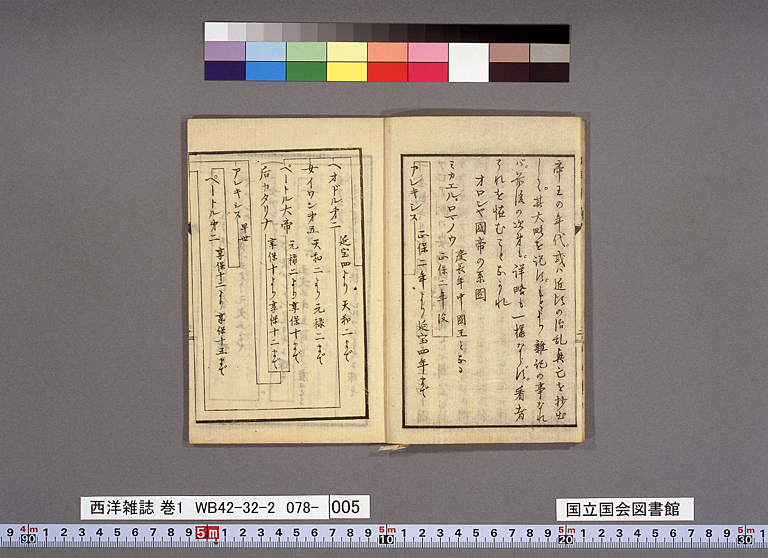 帝王の年代或ハ近代の治乱興亡を抄出
して其大略を記す もとより雑記の事なれ
バ前後の次第も詳略も一様ならず 看者
これを怪むことなかれ
オロシヤ國帝の系圖
ミカエル、ロマノウ 慶長年中國王となる 正保二年没
アレキシス 正保二年より延宝四年まで
ヘオドル第二 延宝四より 天和二まで
女イワン第五 天和二より 元禄二まで
ペートル大帝 元禄二より享保十まで
后カタリナ 享保十より享保十二まで
アレキシス 早世
ペートル第二 享保十二より享保十五まで
西洋雑誌 巻1 WB42-32-2 078-005
国立国会図書館